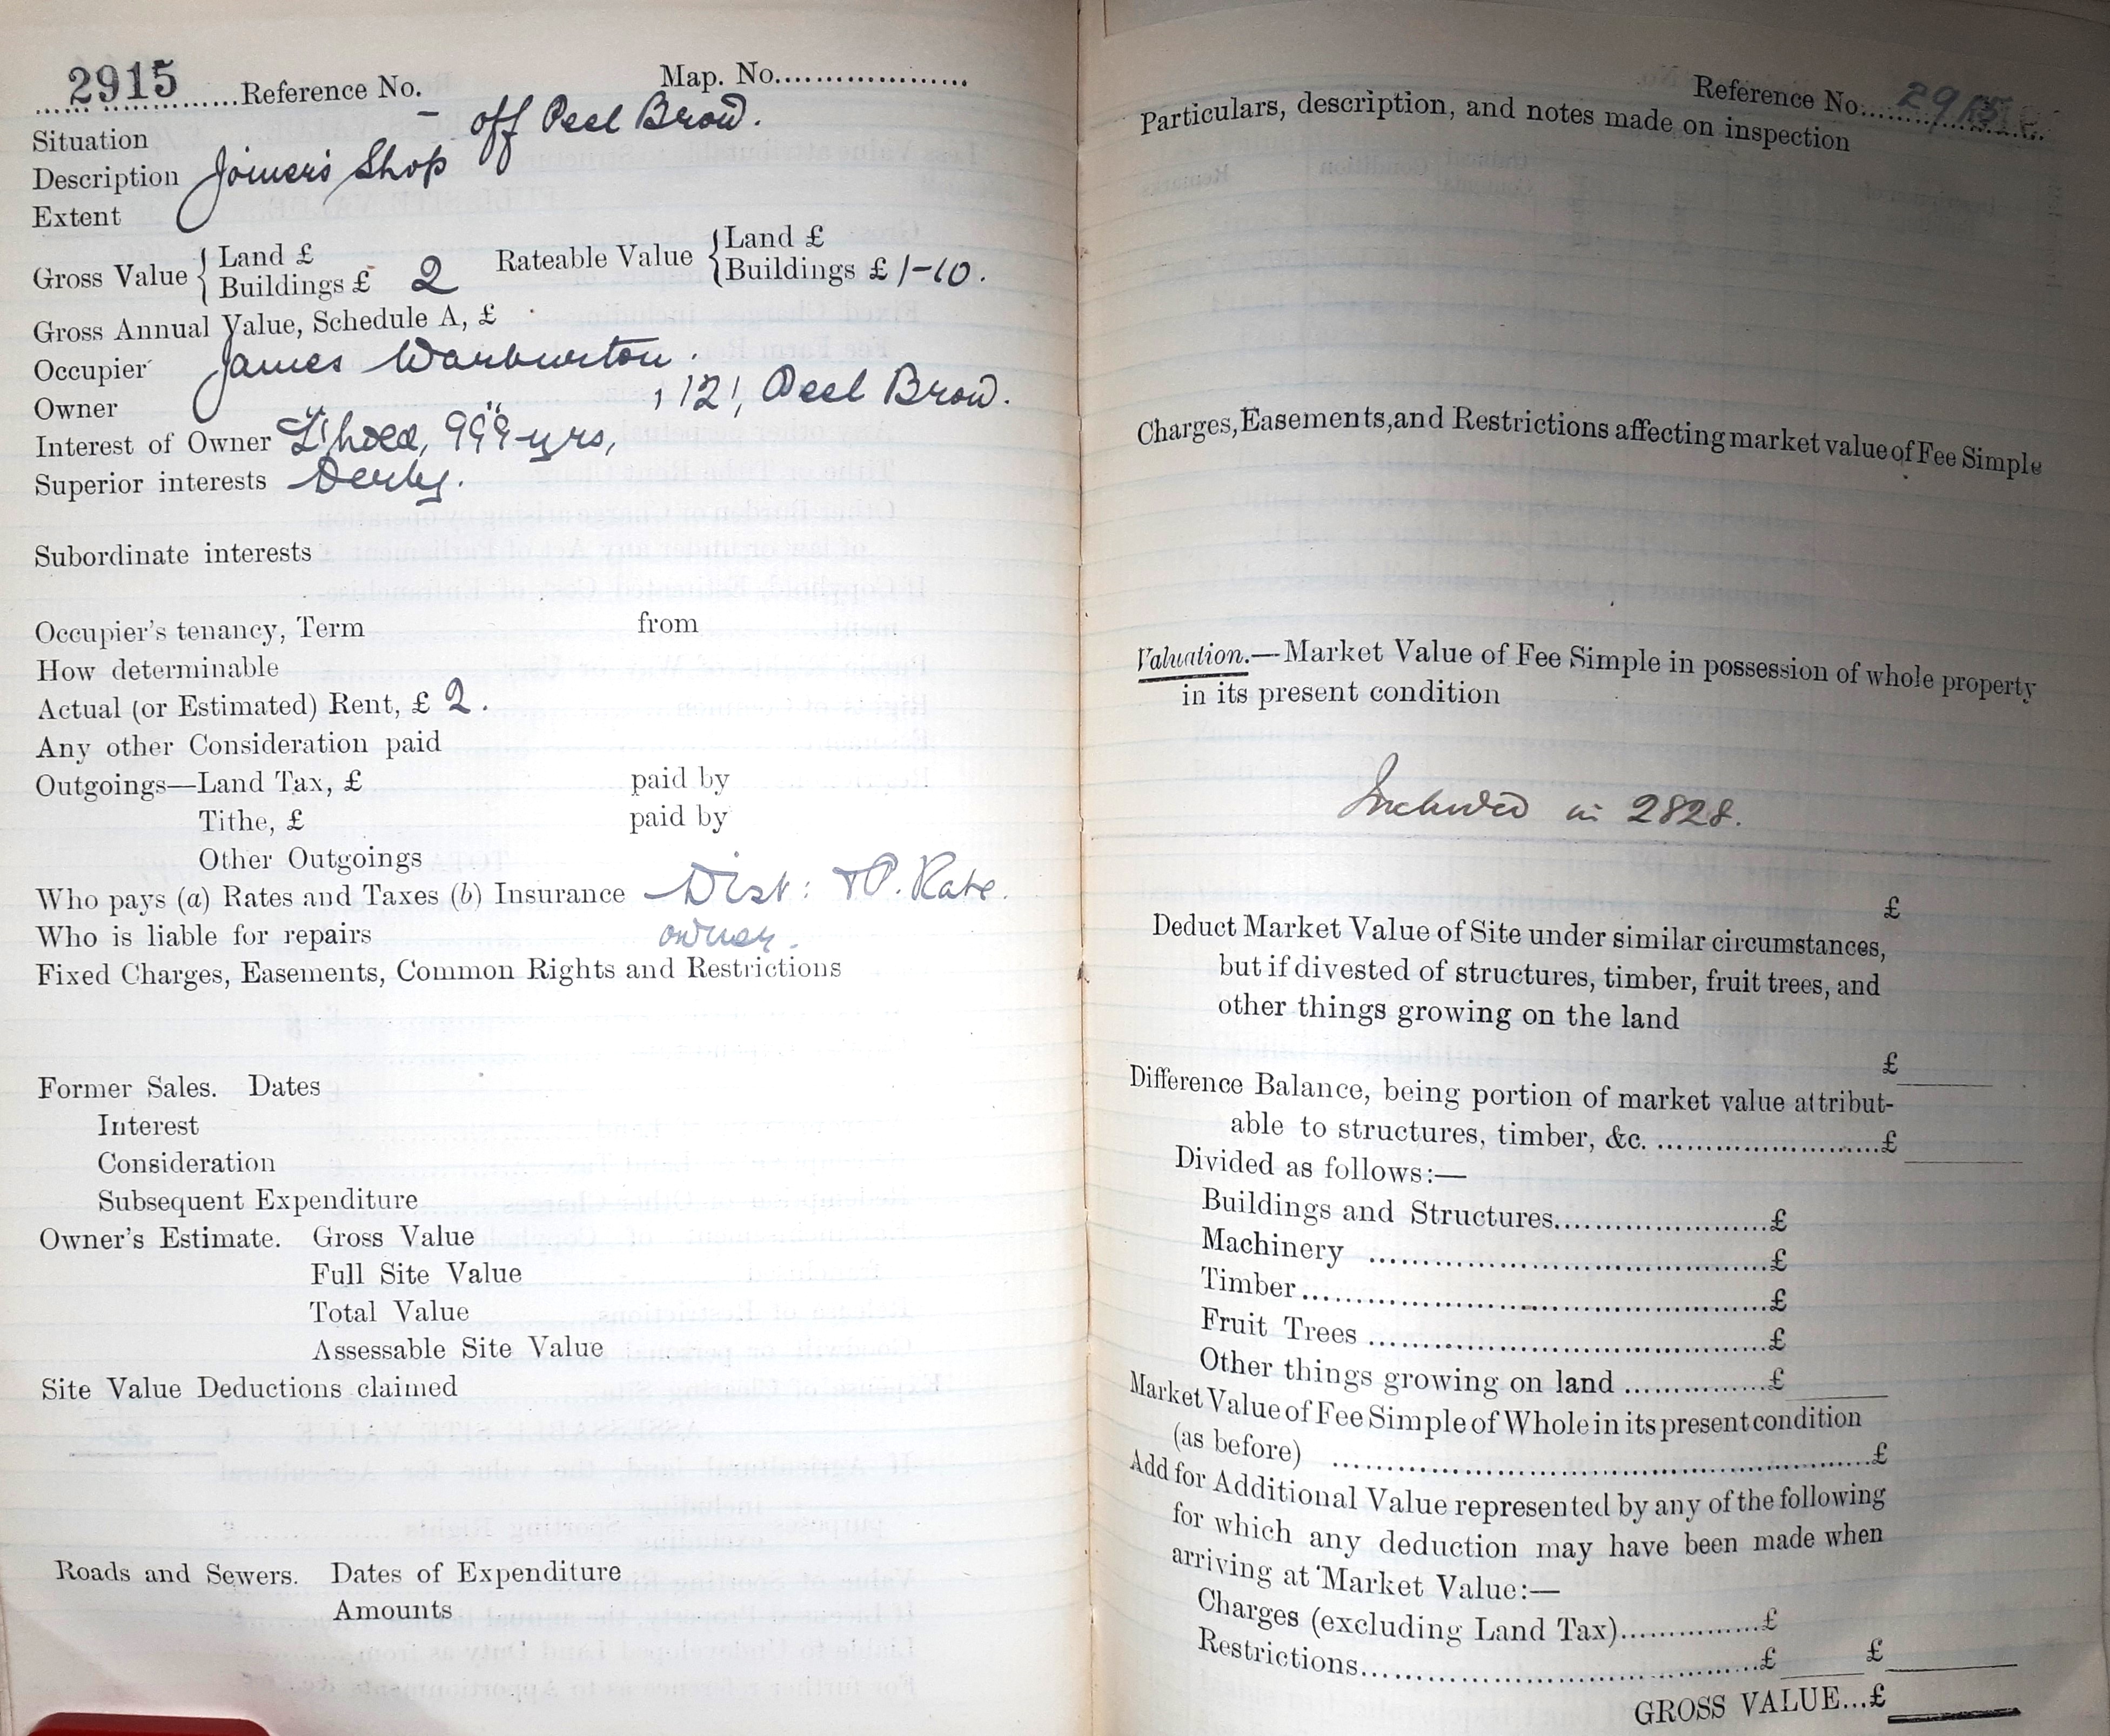 2915 Reference No. Map. No....................
Situation - off Peel Brow.
Description Joiner's Shop
Extent
Gross Value { Land £ Rateable Value { Land £
Buildings £ 2 Buildings £ 1-10.
Gross Annual Value, Schedule A, £
Occupier James Warburton.
Owner " " , 121, Peel Brow.
Interest of Owner L'hold, 999 yrs,
Superior interests Derby.
Subordinate interests
Occupier's tenancy, Term from
How determinable
Actual (or Estimated) Rent, £ 2.
Any other Consideration paid
Outgoings—Land Tax, £ paid by
Tithe, £ paid by
Other Outgoings
Who pays (a) Rates and Taxes (b) Insurance Dist: & P. Rate.
Who is liable for repairs owner.
Fixed Charges, Easements, Common Rights and Restrictions
Former Sales. Dates
Interest
Consideration
Subsequent Expenditure
Owner's Estimate. Gross Value
Full Site Value
Total Value
Assessable Site Value
Site Value Deductions claimed
Roads and Sewers. Dates of Expenditure
Amounts
Reference No. 2915
Particulars, description, and notes made on inspection
Charges, Easements, and Restrictions affecting market value of Fee Simple
Valuation.—Market Value of Fee Simple in possession of whole property
in its present condition
Included in 2828.
£
Deduct Market Value of Site under similar circumstances,
but if divested of structures, timber, fruit trees, and
other things growing on the land
£
Difference Balance, being portion of market value attribut-
able to structures, timber, &c. ........................£
Divided as follows:—
Buildings and Structures......................£
Machinery ..........................................£
Timber................................................£
Fruit Trees ..........................................£
Other things growing on land ...............£
Market Value of Fee Simple of Whole in its present condition
(as before) ..........................................................£
Add for Additional Value represented by any of the following
for which any deduction may have been made when
arriving at Market Value:—
Charges (excluding Land Tax)...............£
Restrictions..........................................£ £
GROSS VALUE...£